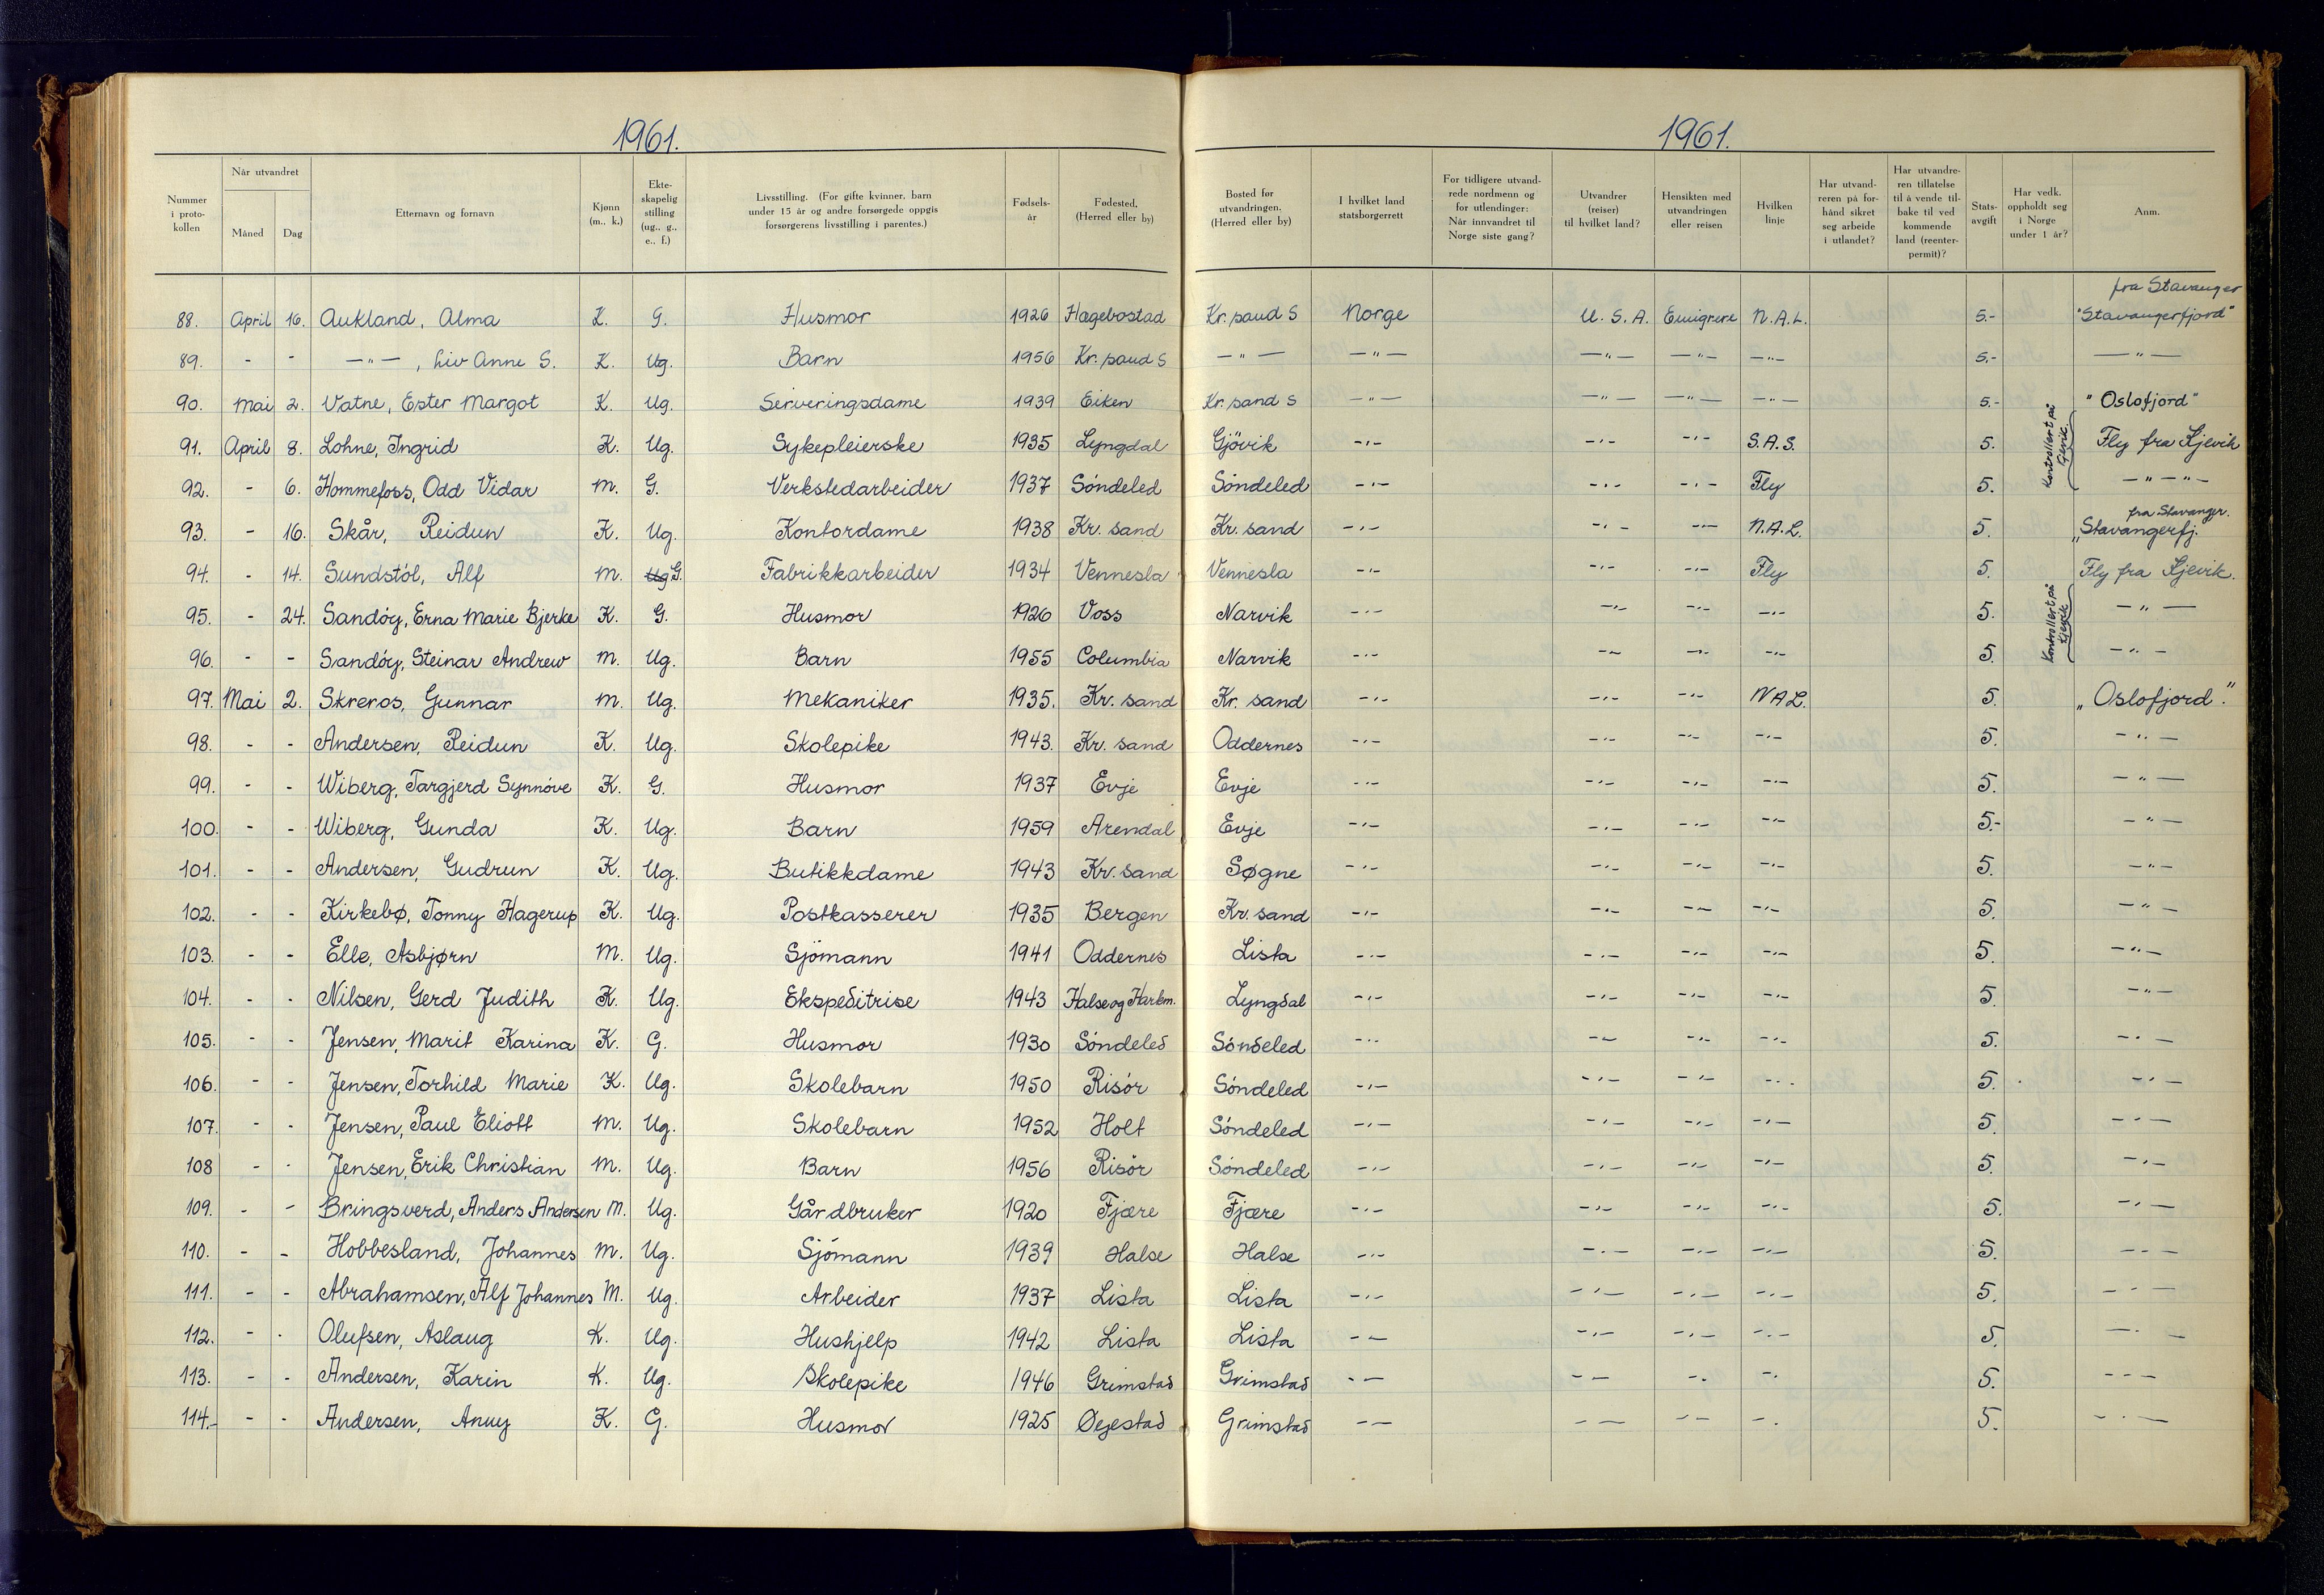 1961.
1961.
Nummer i proto-kollen | Når utvandret Måned Dag | Etternavn og fornavn | Kjønn (m., k.) | Ekte-skapelig stilling (ug., g., e., f.) | Livsstilling. (For gifte kvinner, barn under 15 år og andre forsørgede oppgis forsørgerens livsstilling i parentes.) | Fødsels-år | Fødested, (Herred eller by) | Bosted før utvandringen. (Herred eller by) | I hvilket land statsborgerrett | For tidligere utvand-rede nordmenn og for utlendinger: Når innvandret til Norge siste gang? | Utvandrer (reiser) til hvilket land? | Hensikten med utvandringen eller reisen | Hvilken linje | Har utvand-reren på for-hånd sikret seg arbeide i utlandet? | Har utvandre-ren tillatelse til å vende til-bake til ved kommende land (reenter-permit)? | Stats-avgift | Har vedk. oppholdt seg i Norge under 1 år? | Anm.
88. April 16. Aukland, Alma K. G. Husmor 1926 Hægebostad Kr.sand S Norge U.S.A. Emigrere N.A.L. 5.- fra Stavanger "Stavangerfjord"
89. - - —"—, Liv Anne S. K. Ug. Barn 1956 Kr.sand S —"— —"— —"— —"— —"— 5.- —"—
90. Mai 2. Vatne, Ester Margot K. Ug. Serveringsdame 1939 Eiken Kr.sand S —"— —"— —"— —"— 5.- "Oslofjord"
91. April 8. Lohne, Ingrid K. Ug. Sykepleierske 1935 Lyngdal Gjövik -"- -"- -"- S.A.S. 5. Kontrollert på Kjevik. Fly fra Kjevik
92. - 6. Hommefoss, Odd Vidar M. G. Verkstedarbeider 1937 Söndeled Söndeled -"- -"- -"- Fly 5. —"—"—
93. - 16. Skår, Reidun K. Ug. Kontordame 1938 Kr.sand Kr.sand -"- -"- -"- N.A.L. 5. fra Stavanger. "Stavangerfj.
94. - 14. Sundstöl, Alf M. Ug G. Fabrikkarbeider 1934 Vennesla Vennesla -"- -"- -"- Fly 5. Fly fra Kjevik.
95. - 24. Sandöy, Erna Marie Bjerke K. G. Husmor 1926 Voss Narvik -"- -"- -"- -"- 5. Kontrollert på Kjevik —"—
96. - - Sandöy, Steinar Andrew M. Ug. Barn 1955 Columbia Narvik -"- -"- -"- -"- 5. —"—
97. Mai 2. Skreros, Gunnar M. Ug. Mekaniker 1935. Kr.sand Kr.sand -"- -"- -"- NAL. 5. "Oslofjord".
98. - - Andersen, Reidun K. Ug. Skolepike 1943. Kr.sand Oddernes -"- -"- -"- -"- 5. —"—
99. - - Wiberg, Targjerd Synnöve K. G. Husmor 1937 Evje Evje -"- -"- -"- -"- 5. —"—
100. - - Wiberg, Gunda K. Ug. Barn 1959 Arendal Evje -"- -"- -"- -"- 5.- —"—
101. - - Andersen, Gudrun K. Ug. Butikkdame 1943 Kr.sand Søgne -"- -"- -"- -"- 5. —"—
102. - - Kirkebø, Tonny Hagerup K. Ug. Postkasserer 1935 Bergen Kr.sand -"- -"- -"- -"- 5. —"—
103. - - Elle, Asbjørn M. Ug. Sjömann 1941 Oddernes Lista -"- -"- -"- -"- 5. —"—
104. - - Nilsen, Gerd Judith K. Ug. Ekspeditrise 1943 Halse og Harkm. Lyngdal -"- -"- -"- -"- 5. —"—
105. - - Jensen, Marit Karina K. G. Husmor 1930 Söndeled Söndeled -"- -"- -"- -"- 5. —"—
106. - - Jensen, Torhild Marie K. Ug. Skolebarn 1950 Risör Söndeled -"- -"- -"- -"- 5. —"—
107. - - Jensen, Paul Eliott M. Ug. Skolebarn 1952 Holt Söndeled -"- -"- -"- -"- 5. —"—
108 - - Jensen, Erik Christian M. Ug. Barn 1956 Risör Söndeled -"- -"- -"- -"- 5. —"—
109. - - Bringsverd, Anders Andersen M. Ug. Gårdbruker 1920 Fjære Fjære -"- -"- -"- -"- 5. —"—
110. - - Hobbesland, Johannes M. Ug. Sjömann 1939 Halse Halse -"- -"- -"- -"- 5. —"—
111. - - Abrahamsen, Alf Johannes M. Ug. Arbeider 1937 Lista Lista -"- -"- -"- -"- 5. —"—
112. - - Olufsen, Aslaug K. Ug. Hushjelp 1942 Lista Lista -"- -"- -"- -"- 5. —"—
113. - - Andersen, Karin K. Ug. Skolepike 1946 Grimstad Grimstad -"- -"- -"- -"- 5. —"—
114.- - - Andersen, Anny K. G. Husmor 1925 Øyestad Grimstad -"- -"- -"- -"- 5. —"—